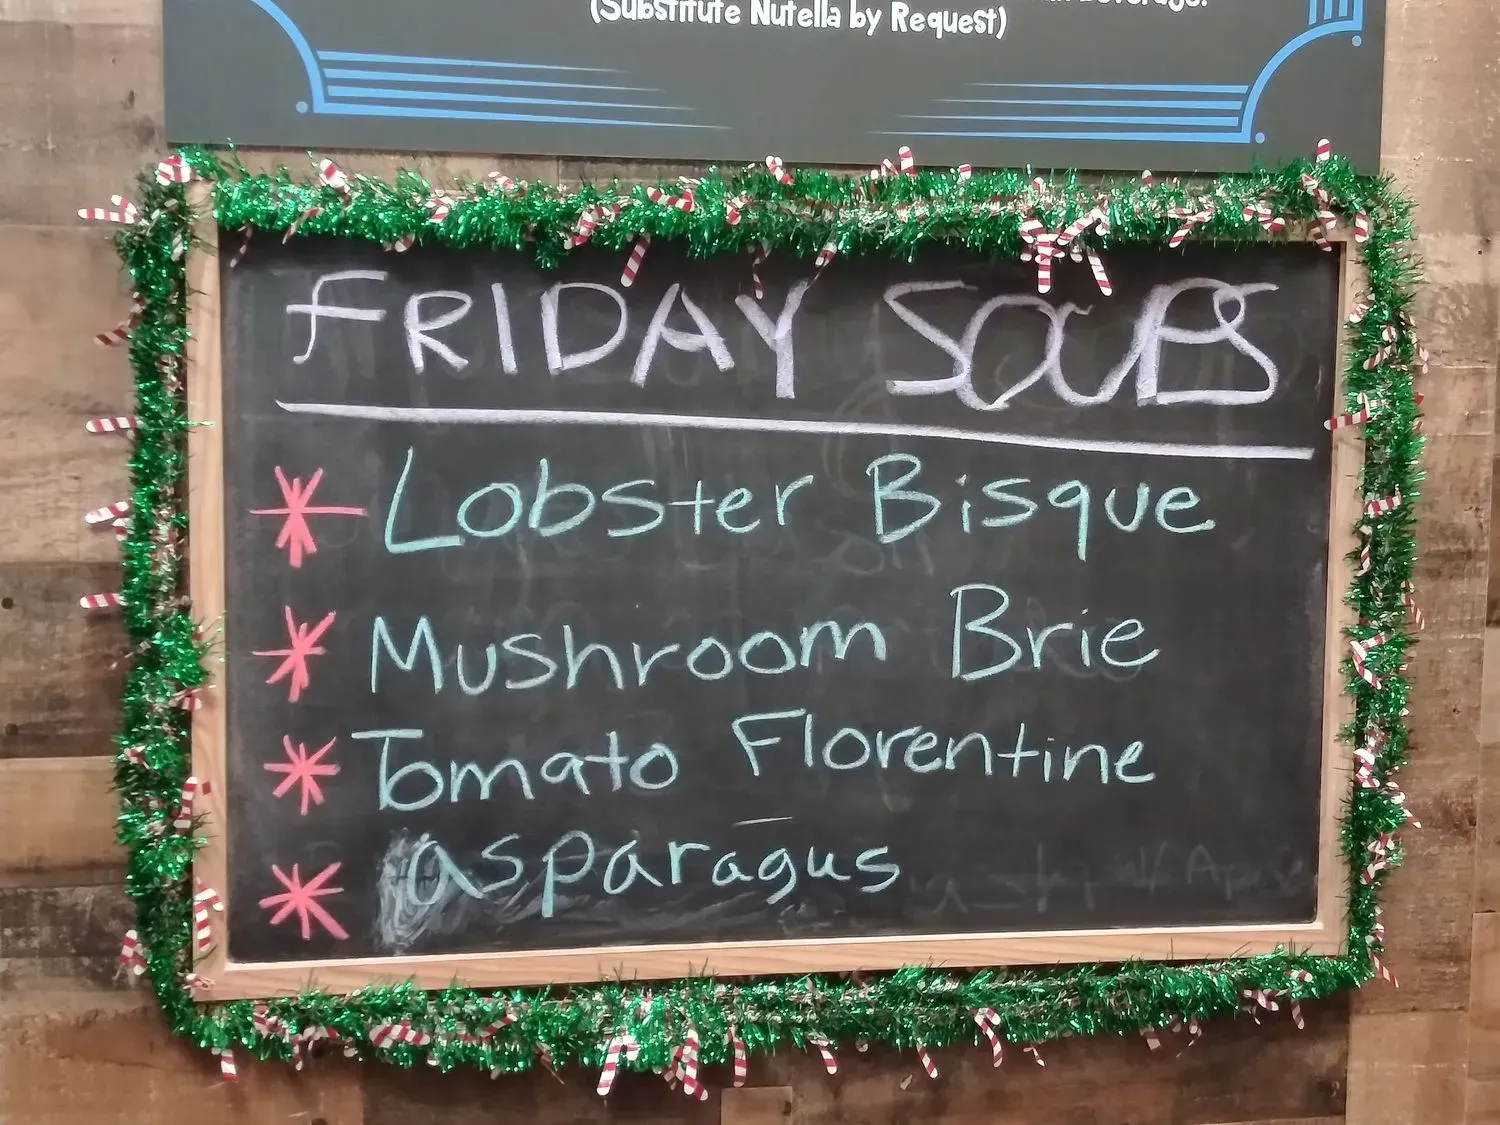 Beverage.
(Substitute Nutella by Request)
FRIDAY SOUPS
* Lobster Bisque
* Mushroom Brie
* Tomato Florentine
* asparagus